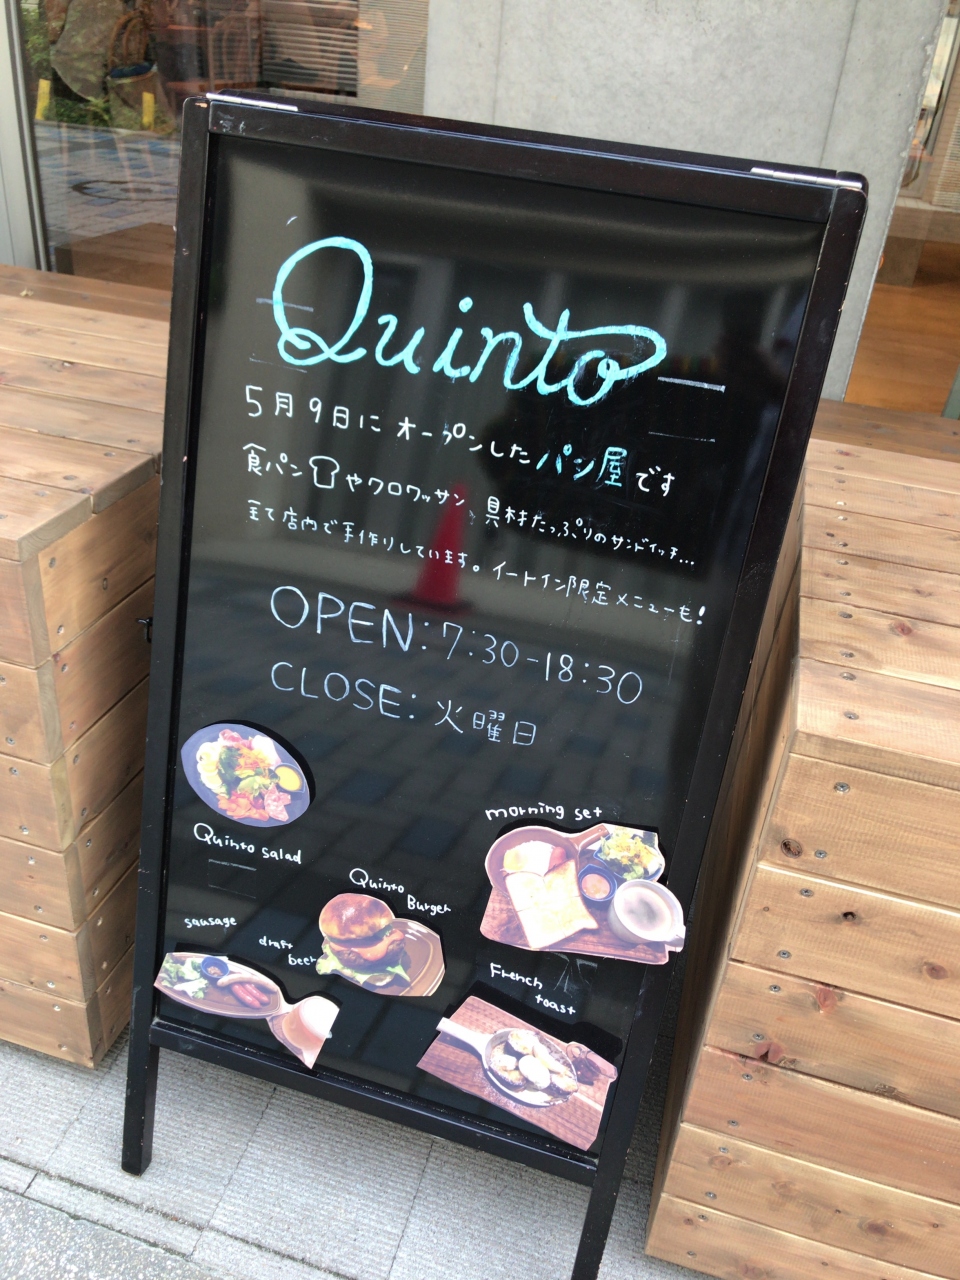 Quinto
5月9日にオープンしたパン屋です
食パンやクロワッサン、具材たっぷりのサンドイッチ...
全て店内で手作りしています。イートイン限定メニューも!
OPEN:7:30-18:30
CLOSE:火曜日
Quinto salad
morning set
Quinto
Burger
sausage
draft
beer
French
toast